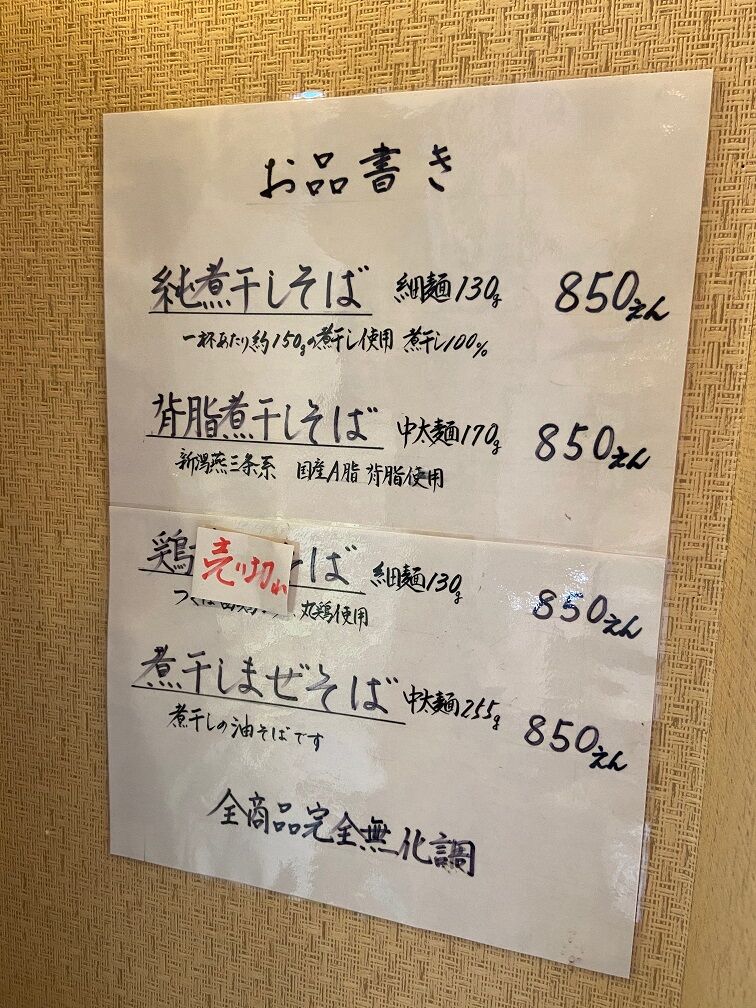 お品書き
純煮干しそば 細麺130g 850えん
一杯あたり約150gの煮干し使用 煮干し100%
背脂煮干しそば 中太麺170g 850えん
新潟燕三条系 国産A脂 背脂使用
鶏 売り切れ そば 細麺130g 850えん
つくば 丸鶏使用
煮干しまぜそば 中太麺255g 850えん
煮干しの油そばです
全商品完全無化調